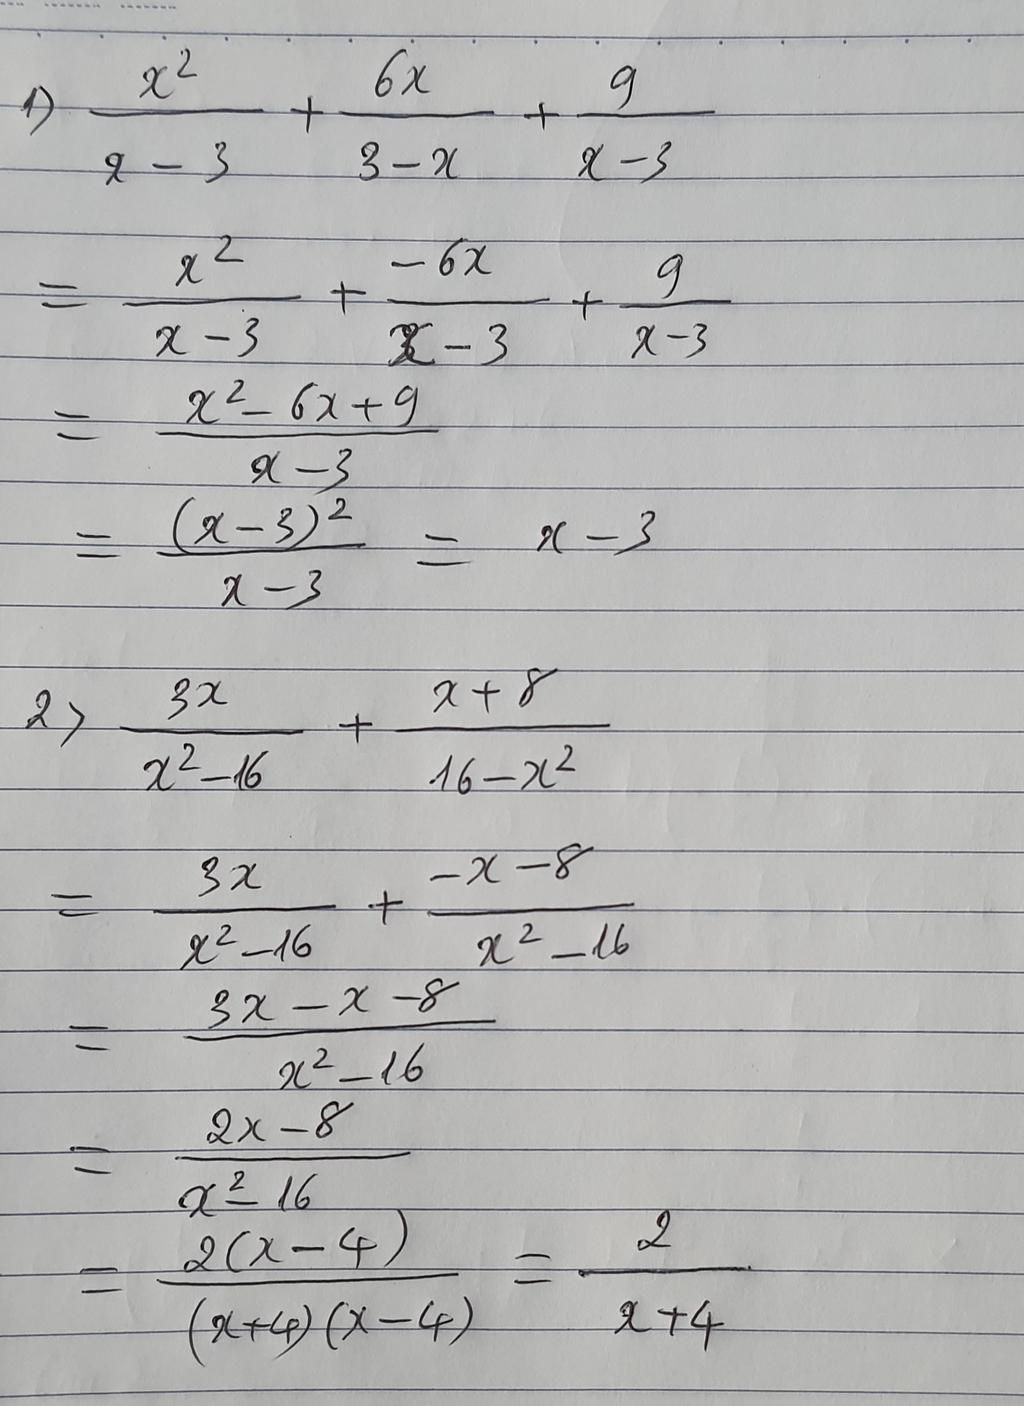 1) x²/(x - 3) + 6x/(3 - x) + 9/(x - 3)
= x²/(x - 3) + -6x/(x - 3) + 9/(x - 3)
= (x² - 6x + 9)/(x - 3)
= (x - 3)²/(x - 3) = x - 3
2) 3x/(x² - 16) + (x + 8)/(16 - x²)
= 3x/(x² - 16) + (-x - 8)/(x² - 16)
= (3x - x - 8)/(x² - 16)
= (2x - 8)/(x² - 16)
= 2(x - 4)/((x + 4)(x - 4)) = 2/(x + 4)